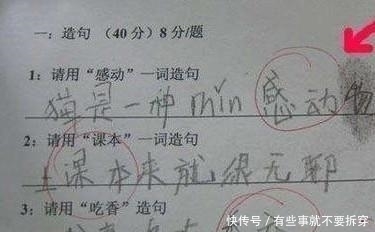 一：造句（40分）8分/题
1：请用“感动”一词造句
猫是一种min感动物
2：请用“课本”一词造句
上课本来就很无聊
3：请用“吃香”造句
快传号／有些事就不要拆穿